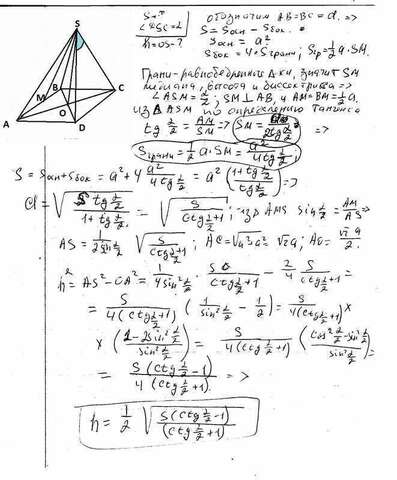 S
M
B
C
O
A
D
∠ASC=α
h=OS-?
обозначим AB=BC=a. =>
S=Sосн - Sбок.
Sосн = a²
Sбок = 4·Sграни; Sгр=½a·SM.
Грани-равнобедренные Δки, значит SM
медиана, высота и биссектриса =>
∠ASM=α/2, SM⊥AB, и AM=BM=½a.
Из ΔASM по определению тангенса
tg α/2 = AM/SM => SM = a/2tg α/2 =>
Sграни = ½ a·SM = a²/4tg α/2;
S = Sосн+Sбок = a²+4 a²/4tg α/2 = a² (1+tg α/2 / tg α/2) =>
a = √(S tg α/2 / 1+tg α/2) = √(S / ctg α/2+1); из AMS sin α/2 = AM/AS =>
AS = 1/2sin α/2 √(S / ctg α/2+1); AC=√a²+a²=√2a; AO=√2 a/2.
h² = AS²-OA² = 1/4sin² α/2 · S/ctg α/2+1 - 2/4 S/ctg α/2+1 =
= S/4(ctg α/2+1) (1/sin² α/2 - 1/2) = S/4(ctg α/2+1) ×
× (1-2sin² α/2 / sin² α/2) = S/4(ctg α/2+1) (cos² α/2-sin² α/2 / sin² α/2) =
= S(ctg α/2-1) / 4(ctg α/2+1) =>
h = 1/2 √(S(ctg α/2-1) / (ctg α/2+1))